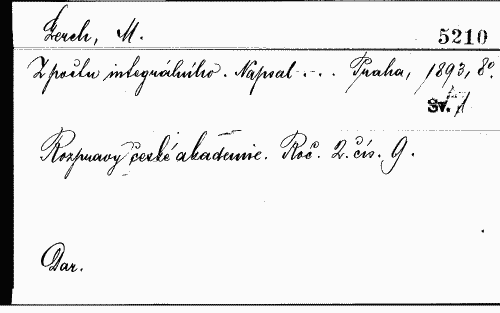 Lerch, M. 5210
Z počtu integrálního. Napsal .... Praha, 1893, 8°.
Sv. 1
Rozpravy české akademie. Roč. 2. čís. 9.
Dar.